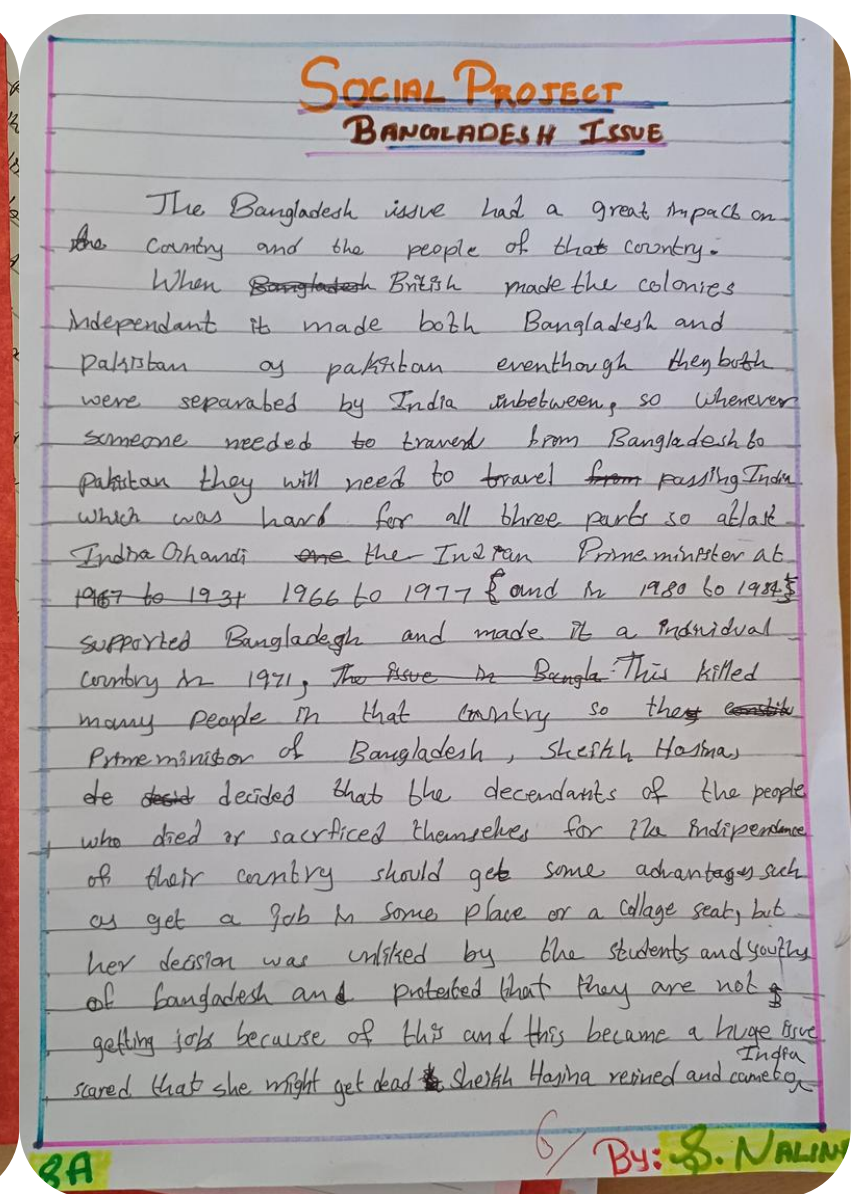 SOCIAL PROJECT
BANGLADESH ISSUE
The Bangladesh issue had a great impact on
the country and the people of that country.
When Bangladesh British made the colonies
independant it made both Bangladesh and
pakistan as pakistan eventhough they both
were separated by India inbetween, so whenever
someone needed to travel from Bangladesh to
pakistan they will need to travel from passing India
which was hard for all three parts so atlast
Indira Ghandi one the Indian Prime minister at
1967 to 1931 1966 to 1977 { and in 1980 to 1984 }
supported Bangladegh and made it a individual
country in 1971, The issue in Bangla This killed
many people in that country so the
Prime minister of Bangladesh, sheikh Hasina,
de desid decided that the decendants of the people
who died or sacrficed themselves for the indipendance
of their country should get some advantages such
as get a job in some place or a collage seat, but
her decision was unliked by the students and youths
of bangladesh and protested that they are not
getting jobs because of this and this became a huge issue
scared that she might get dead sheikh Hasina resined and came to India
6/
8A
By: S. NALIN